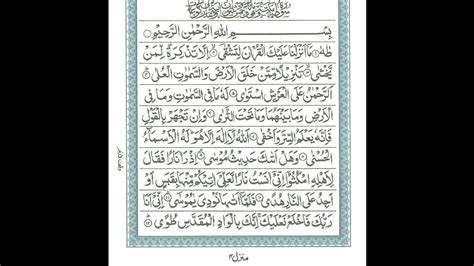 بِسْمِ اللهِ الرَّحْمٰنِ الرَّحِيْمِ
طٰهٰ مَاۤ اَنْزَلْنَا عَلَيْكَ الْقُرْاٰنَ لِتَشْقٰۤى اِلَّا تَذْكِرَةً لِّمَنْ
يَّخْشٰى تَنْزِيْلًا مِّمَّنْ خَلَقَ الْاَرْضَ وَالسَّمٰوٰتِ الْعُلٰى
اَلرَّحْمٰنُ عَلَى الْعَرْشِ اسْتَوٰى لَهٗ مَا فِى السَّمٰوٰتِ وَمَا فِى
الْاَرْضِ وَمَا بَيْنَهُمَا وَمَا تَحْتَ الثَّرٰى وَاِنْ تَجْهَرْ بِالْقَوْلِ
فَاِنَّهٗ يَعْلَمُ السِّرَّ وَاَخْفٰى اَللهُ لَاۤ اِلٰهَ اِلَّا هُوَ لَهُ الْاَسْمَآءُ
الْحُسْنٰى وَهَلْ اَتٰىكَ حَدِيْثُ مُوْسٰى اِذْ رَاٰ نَارًا فَقَالَ
لِاَهْلِهِ امْكُثُوْۤا اِنِّىْۤ اٰنَسْتُ نَارًا لَّعَلِّىْۤ اٰتِيْكُمْ مِّنْهَا بِقَبَسٍ اَوْ
اَجِدُ عَلَى النَّارِ هُدًى فَلَمَّاۤ اَتٰىهَا نُوْدِىَ يٰمُوْسٰى اِنِّىْۤ اَنَا
رَبُّكَ فَاخْلَعْ نَعْلَيْكَ اِنَّكَ بِالْوَادِ الْمُقَدَّسِ طُوًى
منزل ۴